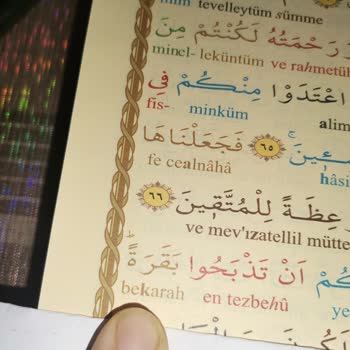 mim tevelleytüm sümme
وَرَحْمَتُهُ لَكُنْتُمْ مِنَ
minel- leküntüm ve rahmetü
اعْتَدَوْا مِنْكُمْ فِي
fis- minküm alim
ـِٔينَۚ ٦٥ فَجَعَلْنَاهَا
fe cealnâhâ hâsi
عِظَةً لِلْمُتَّقِينَ ٦٦
ve mev'ızatellil mütte
كُمْ اَنْ تَذْبَحُوا بَقَرَةًۜ
bekarah en tezbehû ye